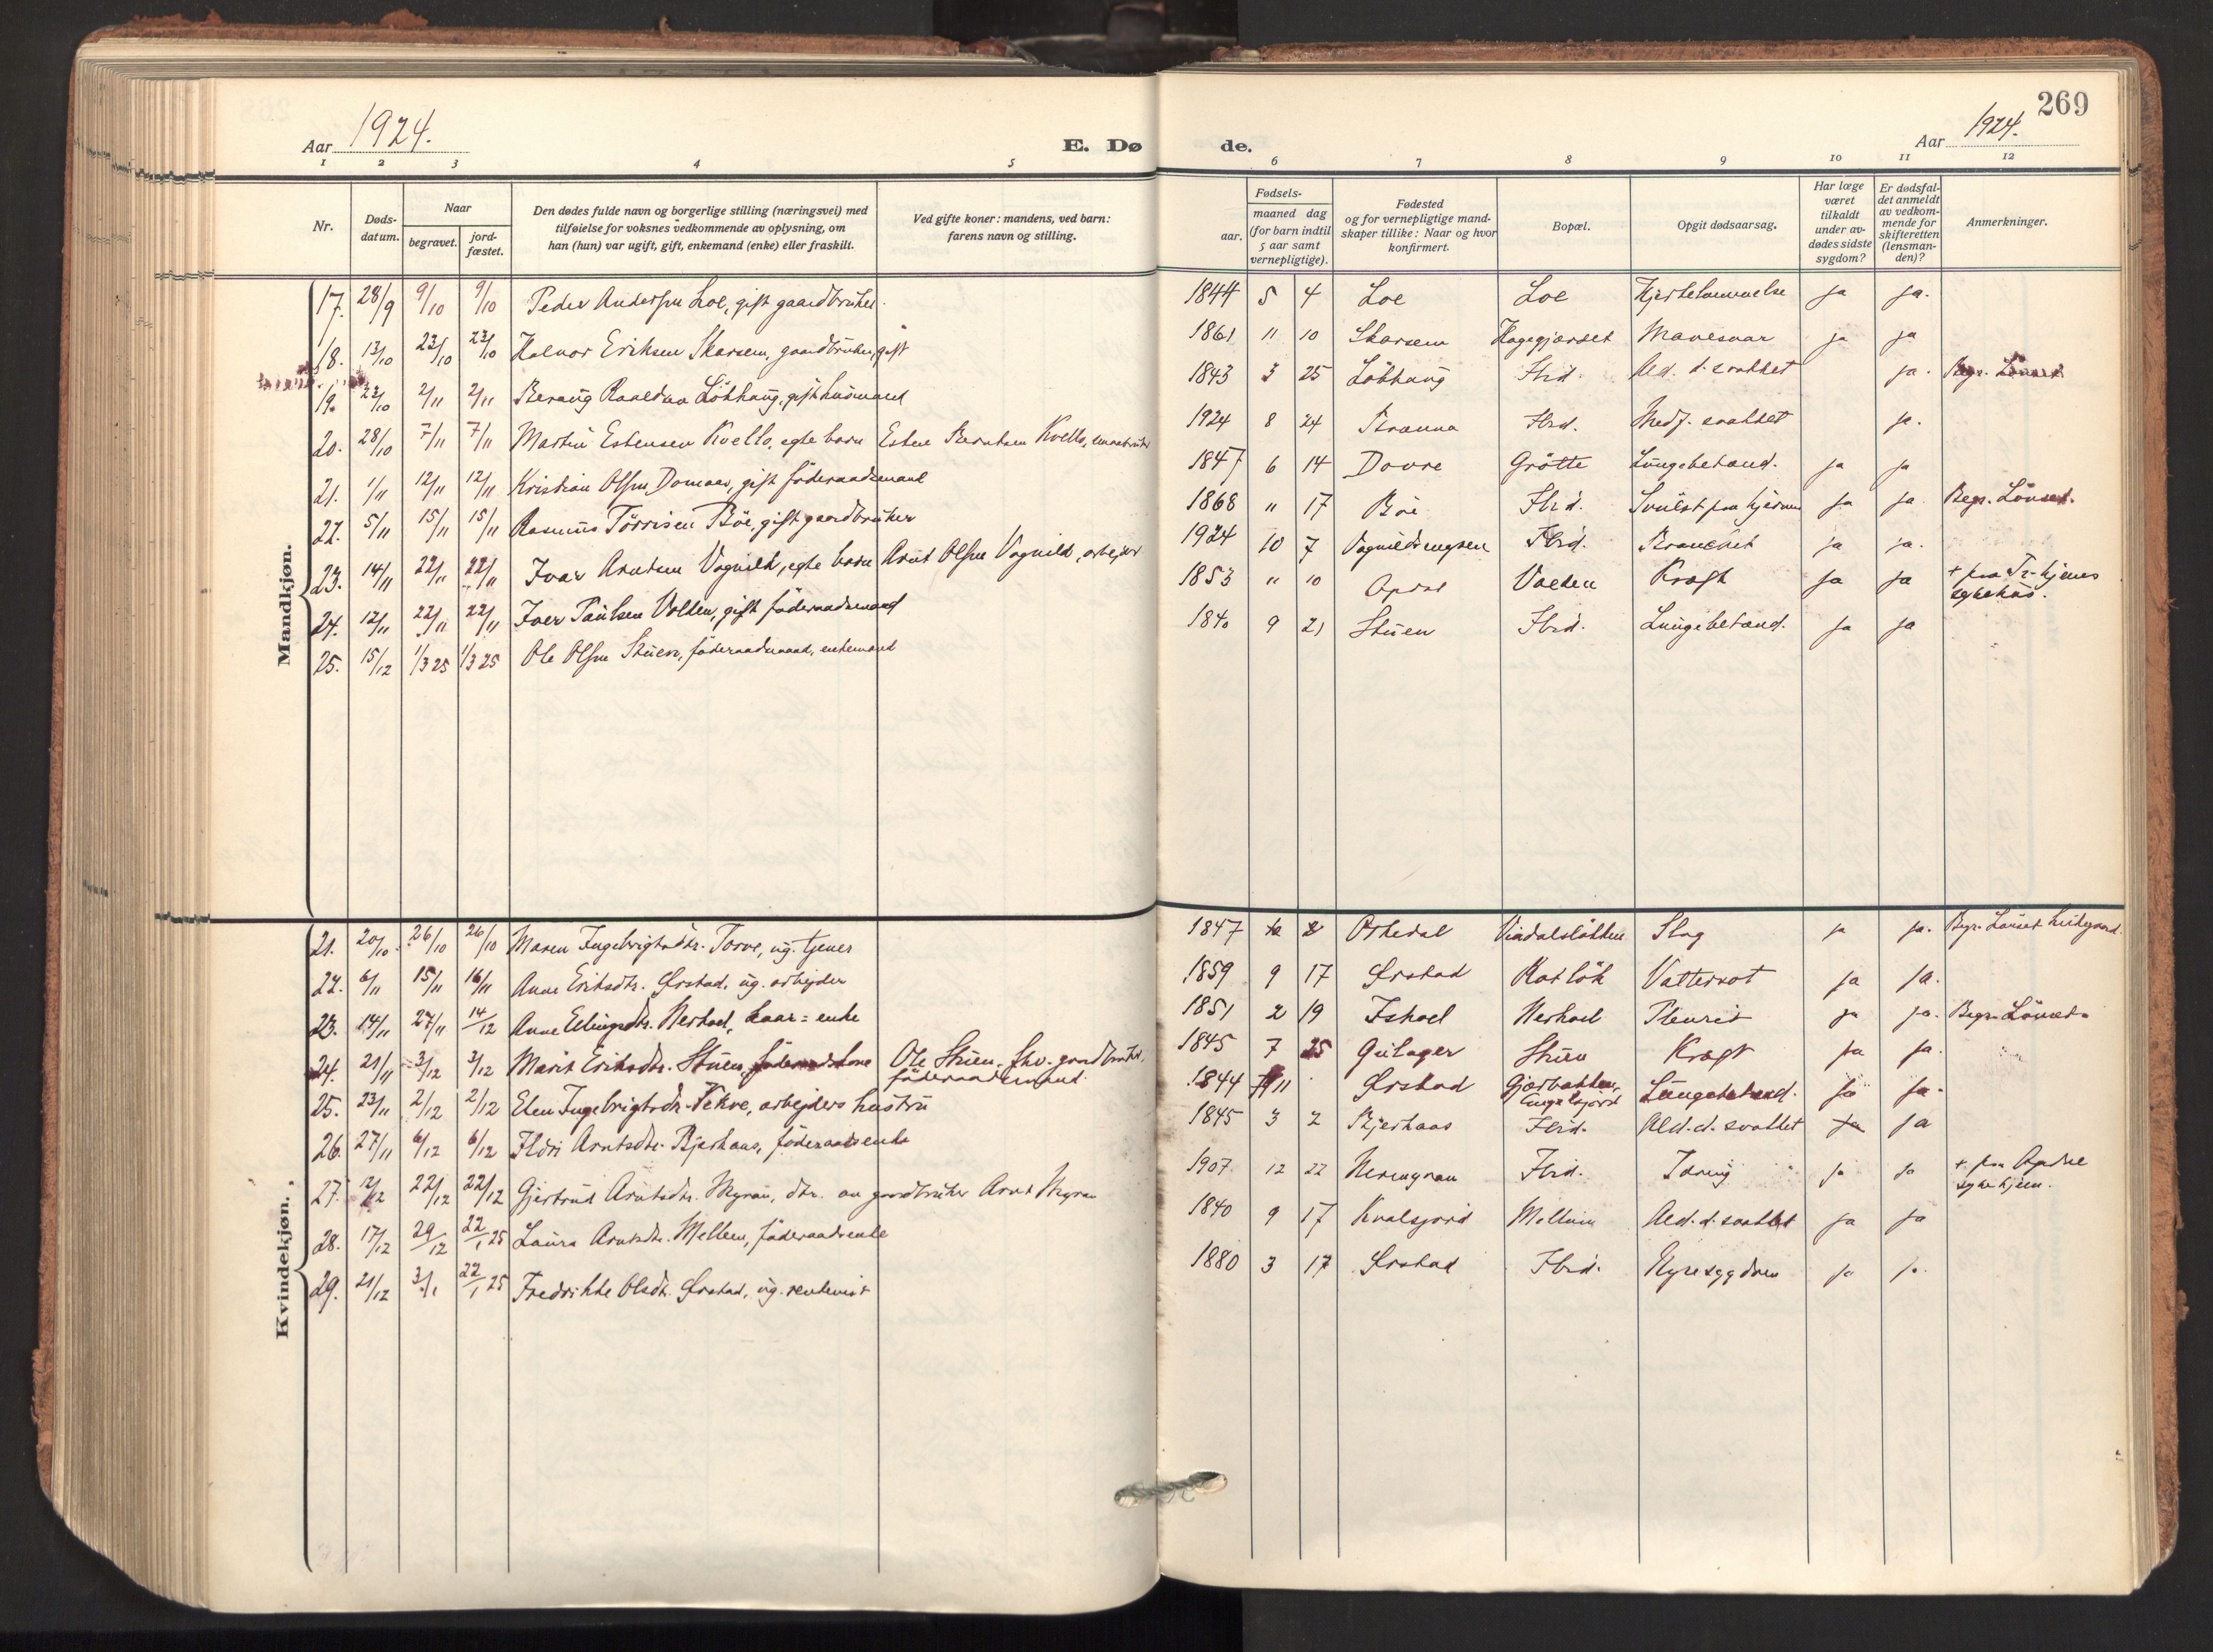 269
Aar 1924.
E. Dø
de.
Aar 1924.
1 2 3 4 5 6 7 8 9 10 11 12
Nr.
Døds-
datum.
Naar
begravet.
jord-
fæstet.
Den dødes fulde navn og borgerlige stilling (næringsvei) med
tilføielse for voksnes vedkommende av oplysning, om
han (hun) var ugift, gift, enkemand (enke) eller fraskilt.
Ved gifte koner: mandens, ved barn:
farens navn og stilling.
Fødsels-
aar.
maaned dag
(for barn indtil
5 aar samt
vernepligtige).
Fødested
og for vernepligtige mand-
skaper tillike: Naar og hvor
konfirmert.
Bopæl.
Opgit dødsaarsag.
Har læge
været
tilkaldt
under av-
dødes sidste
sygdom?
Er dødsfal-
det anmeldt
av vedkom-
mende for
skifteretten
(lensman-
den)?
Anmerkninger.
Mandkjøn.
17. 28/9 9/10 9/10 Peder Andersen Loe, gift gaardbruker. 1844 5 4 Loe Loe Hjertelammelse ja ja.
18. 13/10 23/10 23/10 Halvor Eriksen Skarsem, gaardbruker, gift 1861 11 10 Skarsem Hagegjærdet Mavesaar ja ja
19. 23/10 2/11 2/11 Løkhaug, gift husmand 1843 3 25 Løkhaug Ibid. Ald. d. svakhet ja. Begr. Lønset
20. 28/10 7/11 7/11 Martin Estensen Kvello, egte barn Esten Berntsen Kvello, 1924 8 24 Ibid. Medf. svakhet ja.
21. 1/11 12/11 12/11 Kristian Olsen Domaas, gift føderaadsmand 1847 6 14 Dovre Grøtte Lungebetænd. ja ja
22. 5/11 15/11 15/11 Rasmus Tørrisen Bøe, gift gaardbruker 1868 11 17 Bøe Ibid. Svulst paa hjernen ja ja Begr. Lønset.
23. 14/11 22/11 22/11 Ivar Arntsen Vognild, egte barn Arnt Olsen Vognild, arbejder 1924 10 7 Vognildsengen Ibid. Bronchit ja ja.
24. 12/11 22/11 22/11 Iver Paulsen Volden, gift føderaadsmand 1853 11 10 Opdal Volden Kræft ja ja + paa Tr.hjems
sykehus.
25. 15/12 1/3 25 1/3 25 Ole Olsen Stuen, føderaadsmand, enkemand 1840 9 21 Stuen Ibid. Lungebetænd. ja ja
Kvindekjøn.
21. 20/10 26/10 26/10 Maren Ingebrigtsdtr. Torve, ug. tjener 1847 2 Vindalsløkken Slag ja ja. Begr. Lønset
22. 6/11 15/11 16/11 Anne Eriksdtr. Ørstad, ug. arbejder 1859 9 17 Ørstad Vattersot ja ja.
23. 14/11 27/11 14/12 Anne Ellingsdtr. Nerhoel, kaar=enke 1851 2 19 Ishoel Nerhoel Pleurit ja ja. Begr. Lønset.
24. 21/11 3/12 3/12 Marit Eriksdtr. Stuen, føderaadskone Ole Stuen, fhv. gaardbruker,
føderaadsmand. 1845 7 25 Gulager Stuen Kræft ja ja.
25. 23/11 2/12 2/12 Elen Ingebrigtsdtr. Vekve, arbejders hustru 1844 11 Ørstad Gjørbakken,
Engelsjord Lungebetænd. ja ja.
26. 27/11 6/12 6/12 Ildri Arntsdtr. Bjerkaas, føderaadsenke 1845 3 2 Bjerkaas Ibid. Ald. d. svakhet ja ja
27. 2/12 22/12 22/12 Gjertrud Arntsdtr. Myran, dtr. av gaardbruker Arnt Myran 1907 12 22 Neremyran Ibid. Tæring ja ja + paa Opdal
sykehjem.
28. 17/12 29/12 22/1 25 Laura Arntsdtr. Mellem, føderaadsenke 1840 9 17 Kvalsjord Mellem Ald. d. svakhet ja ja
29. 21/12 3/1 22/1 25 Fredrikke Olsdtr. Ørstad, ug. rentenist 1880 3 17 Ørstad Ibid. Nyresygdom ja ja.